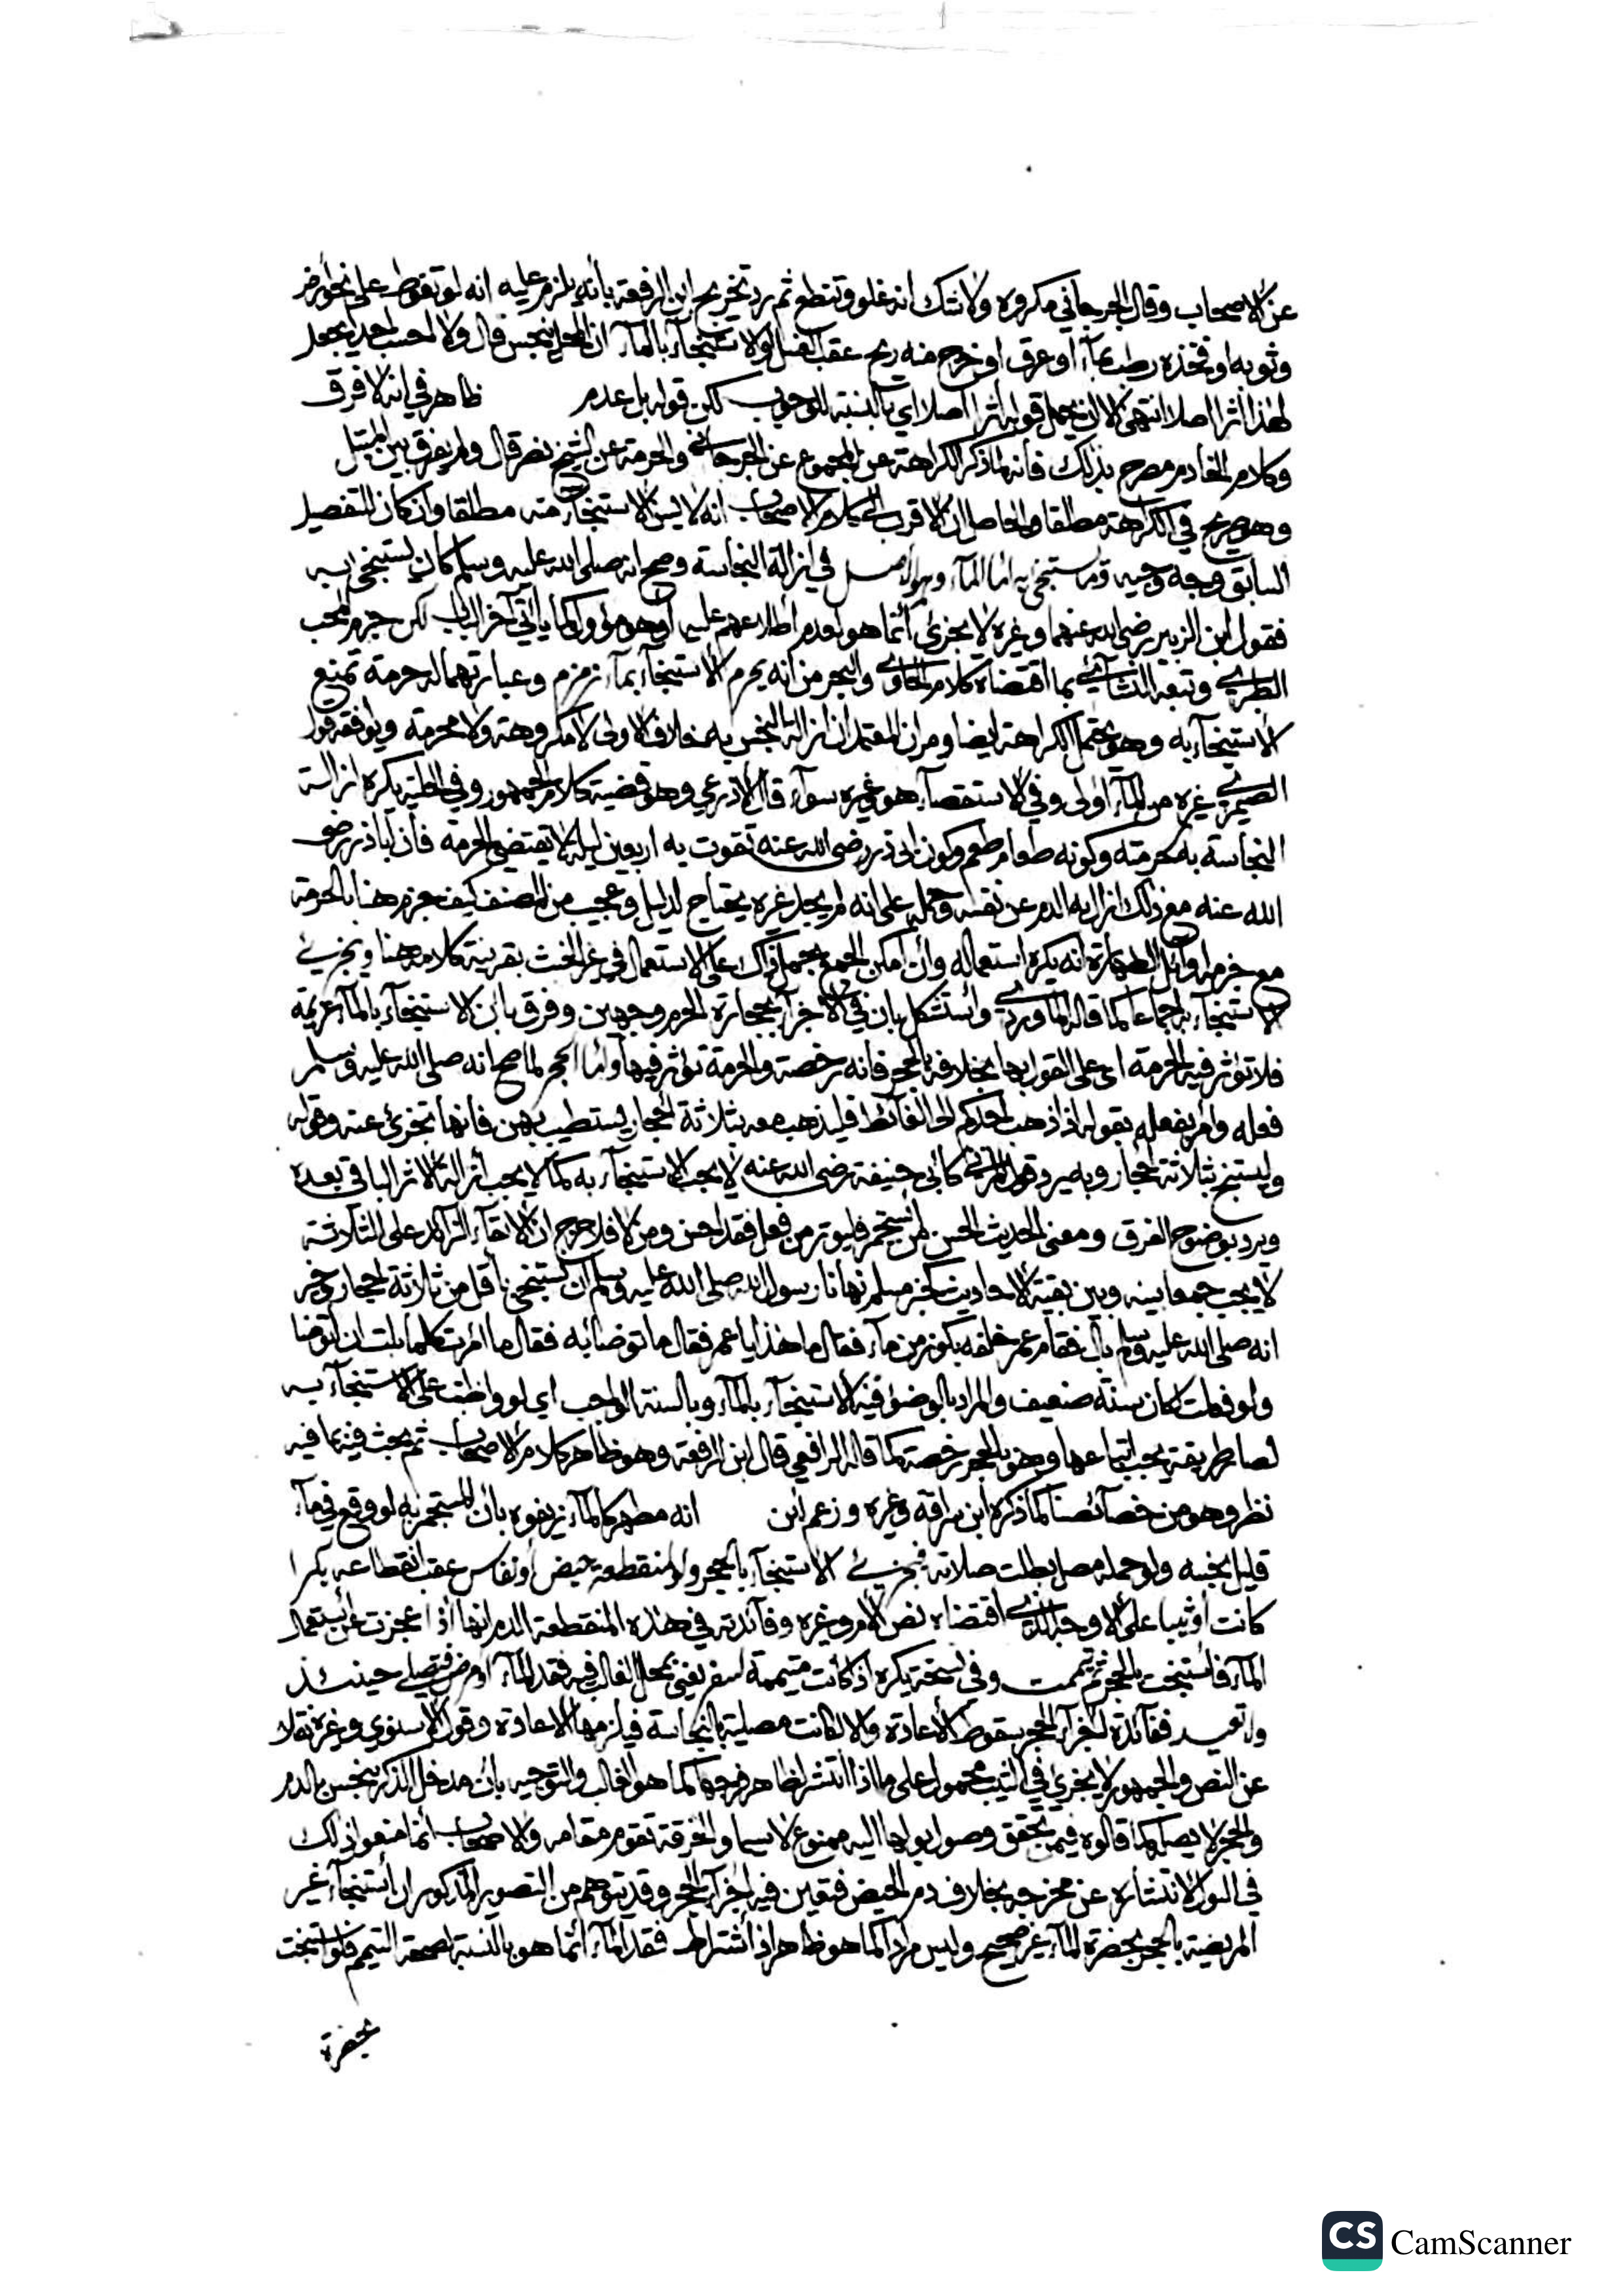 عن الاصحاب وقال الجرجاني مكروه ولاشك انه غلو وتنطع ثم رد تخريج ابن الرفعة بأنه يلزم عليه انه لو تغوط على نحو أرض
وثوبه او فخذه رطب بمآء او عرق او خرج منه ريح عقب الغسل او الاستنجآء بالمآء ان المحل ينجس قال ولا احسب احدا يجعل
لهذا أثرا اصلا انتهى الا ان يحمل قوله أثرا اصلا اي بالنسبة للوجوب لكن قوله بل عدم ظاهر في انه لا فرق
وكلام الخادم مصرح بذلك فانه لما ذكر الكراهة عن المجموع عن الجرجاني والحرمة عن الشيخ نصر قال ولم يفرق بين المبتل
وهو صريح في الكراهة مطلقا والحاصل ان الاقرب الى كلام الاصحاب انه لا يسن الاستنجآء منه مطلقا وان كان التفصيل
السابق وجه وجيه وما يستنجى به اما المآء وهو الاصل في ازالة النجاسة وصح انه صلى الله عليه وسلم كان يستنجي به
فقول ابن الزبير رضي الله عنهما وغيره لا يجزئ أنما هو لعدم أطلاعهم عليه أو هو مؤول كما يأتي آخر الباب لكن جزم المحب
الطبري وتبعه النشائي بما اقتضاه كلام الحاوي والبحر من انه يحرم الاستنجآء بمآء زمزم وعبارتهما له حرمة تمنع
الاستنجآء به وهو يحتمل الكراهة ايضا ومر ان المعتمد ان ازالة النجس به خلاف الاولى لا مكروهة ولا محرمة ويوافقه قول
الصيمري غيره من المآء اولى وفي الاستقصآء هو وغيره سوآء قال الاذرعي وهو قضية كلام الجمهور وفي الحلية يكره ازالة
النجاسة به لحرمته وكونه طعام طعم وكون ابي ذر رضي الله عنه تقوت به اربعين ليلة لا يقتضي الحرمة فأن أباذر رضي
الله عنه مع ذلك ازال به الدم عن نفسه وحمله على انه لم يجد غيره يحتاج لدليل وعجيب من المصنف كيف جزم هنا بالحرمة
مع جزمه أوائل الطهارة انه يكره استعماله وأن أمكن الجمع بحمل ذاك على الاستعمال في غير الخبث بقرينة كلامه هنا ويجزئ
الاستنجآء به اجماعا كما قاله الماوردي وأستشكل بان في الاجزآء بحجارة الحرم وجهين وفرق بأن الاستنجآء بالمآء عزيمة
فلا تؤثر فيه الحرمة اي على القول بها بخلافه بالحجر فانه رخصة والحرمة تؤثر فيها وأما الحجر لما صح انه صلى الله عليه وسلم
فعله وأمر بفعله بقوله اذا ذهب احدكم الى الغائط فليذهب معه بثلاثة أحجار يستطيب بهن فانها تجزئ عنه وقوله
وليستنج بثلاثة أحجار وبه يرد قول المزني كأبي حنيفة رضي الله عنه لا يجب الاستنجآء به كما لا يجب أزالة الاثر الباقي بعده
ويرد بوضوح الفرق ومعنى الحديث الحسن من أستجمر فليوتر من فعل فقد احسن ومن لا فلا حرج ان الانقآء الزائد على الثلاثة
لا يجب جمعا بينه وبين بقية الاحاديث كخبر مسلم نهانا رسول الله صلى الله عليه وسلم ان نستنجي بأقل من ثلاثة أحجار وخبر
انه صلى الله عليه وسلم بال فقام عمر خلفه بكوز من مآء فقال ما هذا يا عمر فقال ما توضأ به فقال ما امرت كلما بلت ان اتوضأ
ولو فعلت لكان سنة ضعيف والمراد بالوضوء فيه الاستنجآء بالمآء وبالسنة الواجب اي لو واظبت على الاستنجآء به
لصار طريقة يجب اتباعها وهو بالحجر رخصة كما قاله الرافعي قال ابن الرفعة وهو ظاهر كلام الاصحاب ثم بحث فيه بما فيه
نظر وهو من خصآئصنا كما ذكره ابن سراقة وغيره وزعم ابن انه مطهر كالمآء زيفوه بأن المستجمر به لو وقع في مآء
قليل نجسه ولو حمله مصل بطلت صلاته فيجزئ الاستنجآء بالحجر ولو لمنقطعة حيض أو نفاس عقب انقطاعه بكرا
كانت أو ثيبا على الاوجه الذي اقتضاه نص الأم وغيره وفائدته في هذه المنقطعة الدم انها أذا عجزت عن أستعمال
المآء فأستنجت بالحجر ثم تيممت وفي نسخة بكره اذ كانت متيممة لسفر يعني بمحل الغالب فيه فقد المآء او مرض فتصلي حينئذ
ولا تعيد ففآئدة اجزآء الحجر سقوط الأعادة والا لكانت مصلية بالنجاسة فيلزمها الاعادة وقول الاسنوي وغيره نقلا
عن النص والجمهور لا يجزئ في الثيب محمول على ما اذا أنتشر لظاهر فرجها كما هو الغالب والتوجيه بأن مدخل الذكر ينجس بالدم
والحجر لا يصله كما قالوه فيمن تحقق وصول بولها اليه ممنوع لا سيما والخرقة تقوم مقامه والاصحاب انما منعوا ذلك
في البول لانتشاره عن مخرجه بخلاف دم الحيض فتعين فيه اجزآء الحجر وقد يتوهم من التصوير المذكور ان أستنجآء غير
المريضة بالحجر بحضرة المآء غير صحيح وليس مرادا كما هو ظاهر اذ أشتراط فقد المآء أنما هو بالنسبة لصحة التيمم فلو أستنجت
بحضرة
CS CamScanner